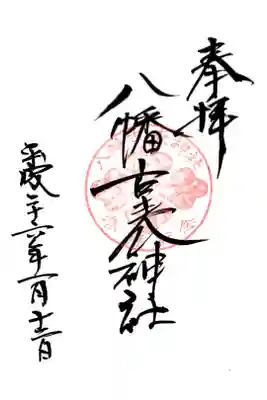 奉拝
八幡古表神社
平成二十六年一月十二日